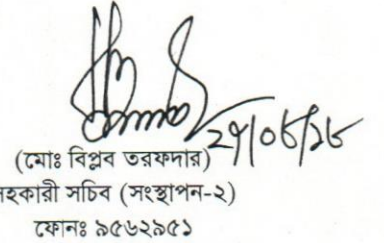 (মোঃ বিপ্লব তরফদার)
হকারী সচিব (সংস্থাপন-২)
ফোনঃ ৯৫৬২৯৫১